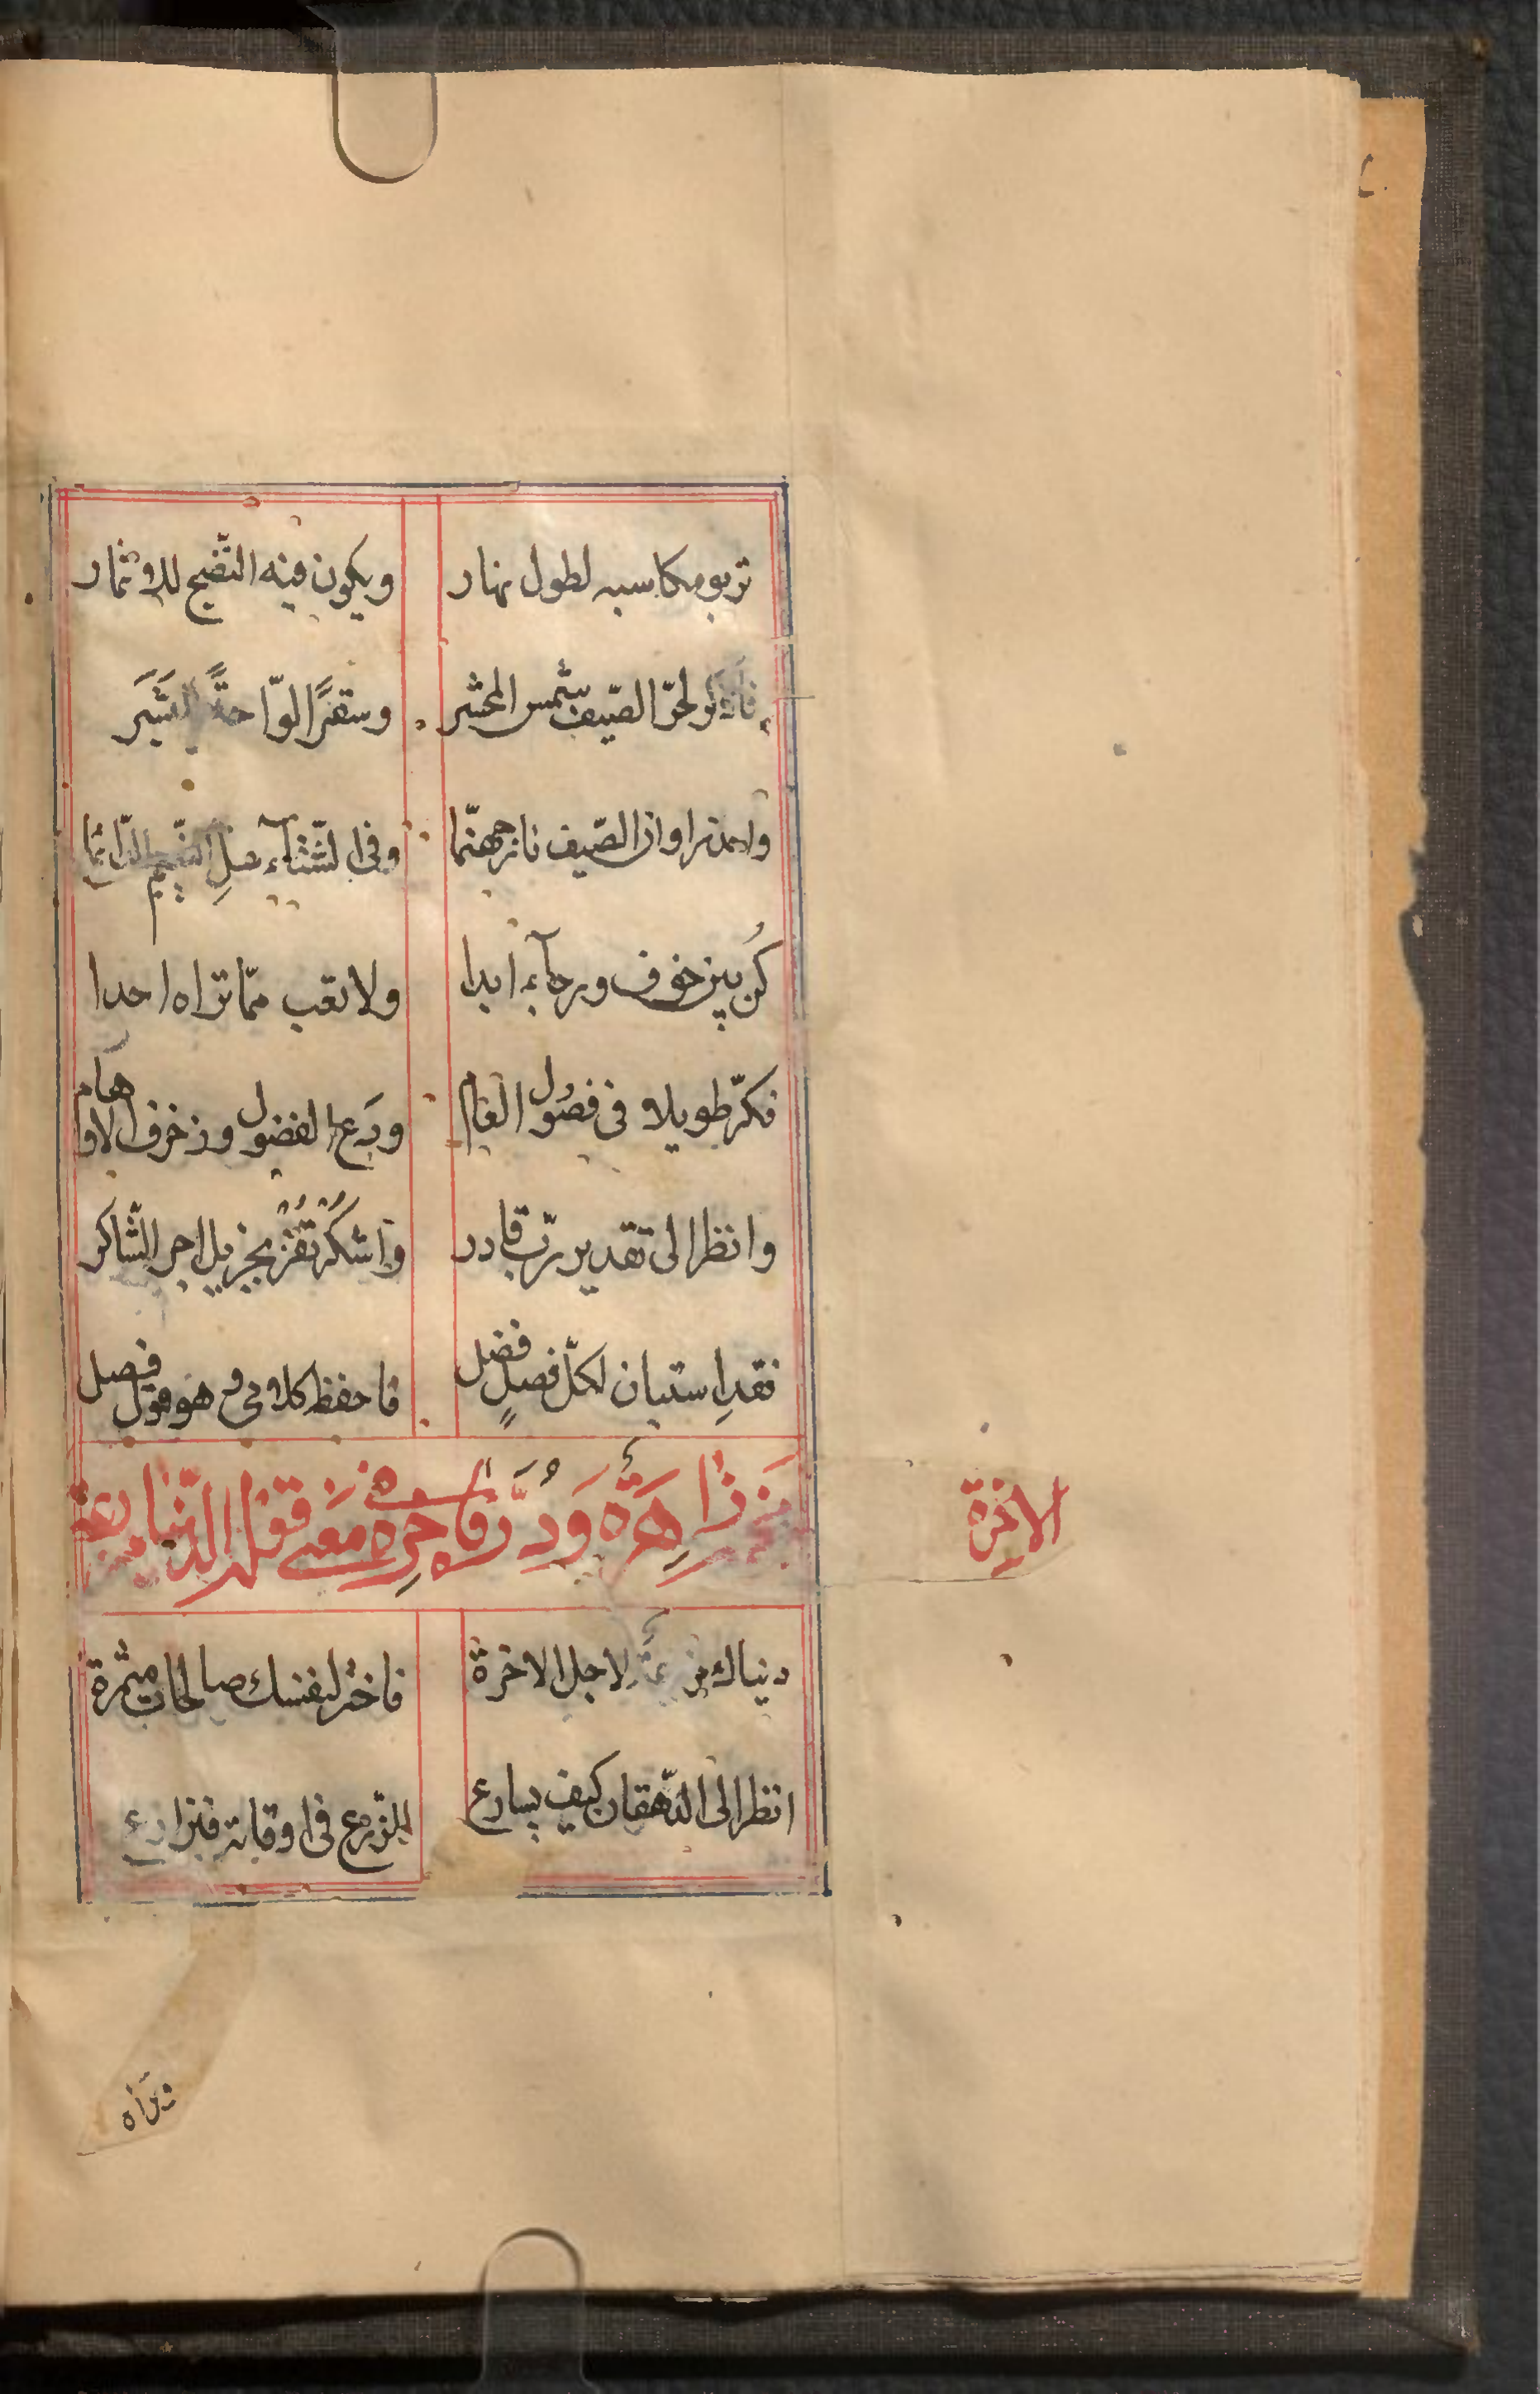 تربو مكاسبه لطول نهار ويكون فيه النّضج للاثمار
فاذكر لحرّ الصّيف شمس المحشر وسقرًا لوّاحةً للبَشَر
واحذر اوان الصّيف نار جهنّما وفى الشّتآء صلِ النّعيم الدّائما
كُن بين خوف ورجآء ابدا ولا تعب ممّا تراه احدا
فكّر طويلا فى فصُول العام ودَع الفضول وزخرف الاوهام
وانظر الى تقدير ربّ قادر واشكُر تَفُز بجزيل اجر الشّاكر
فقدِ استبان لكلّ فصلٍ فضل فاحفظ كلامى فهو قول فصل
زاهرَة وَدُرَّة فاخرة فى مَعنى قوله الدّنيا مزرعة
الاخرة
دنياك مزرعَة لاجل الاخرة فاختر لنفسك صالحات مثمرة
انظر الى الدّهقان كيف يسارع للزّرع فى اوقاته فيزارع
وتراه